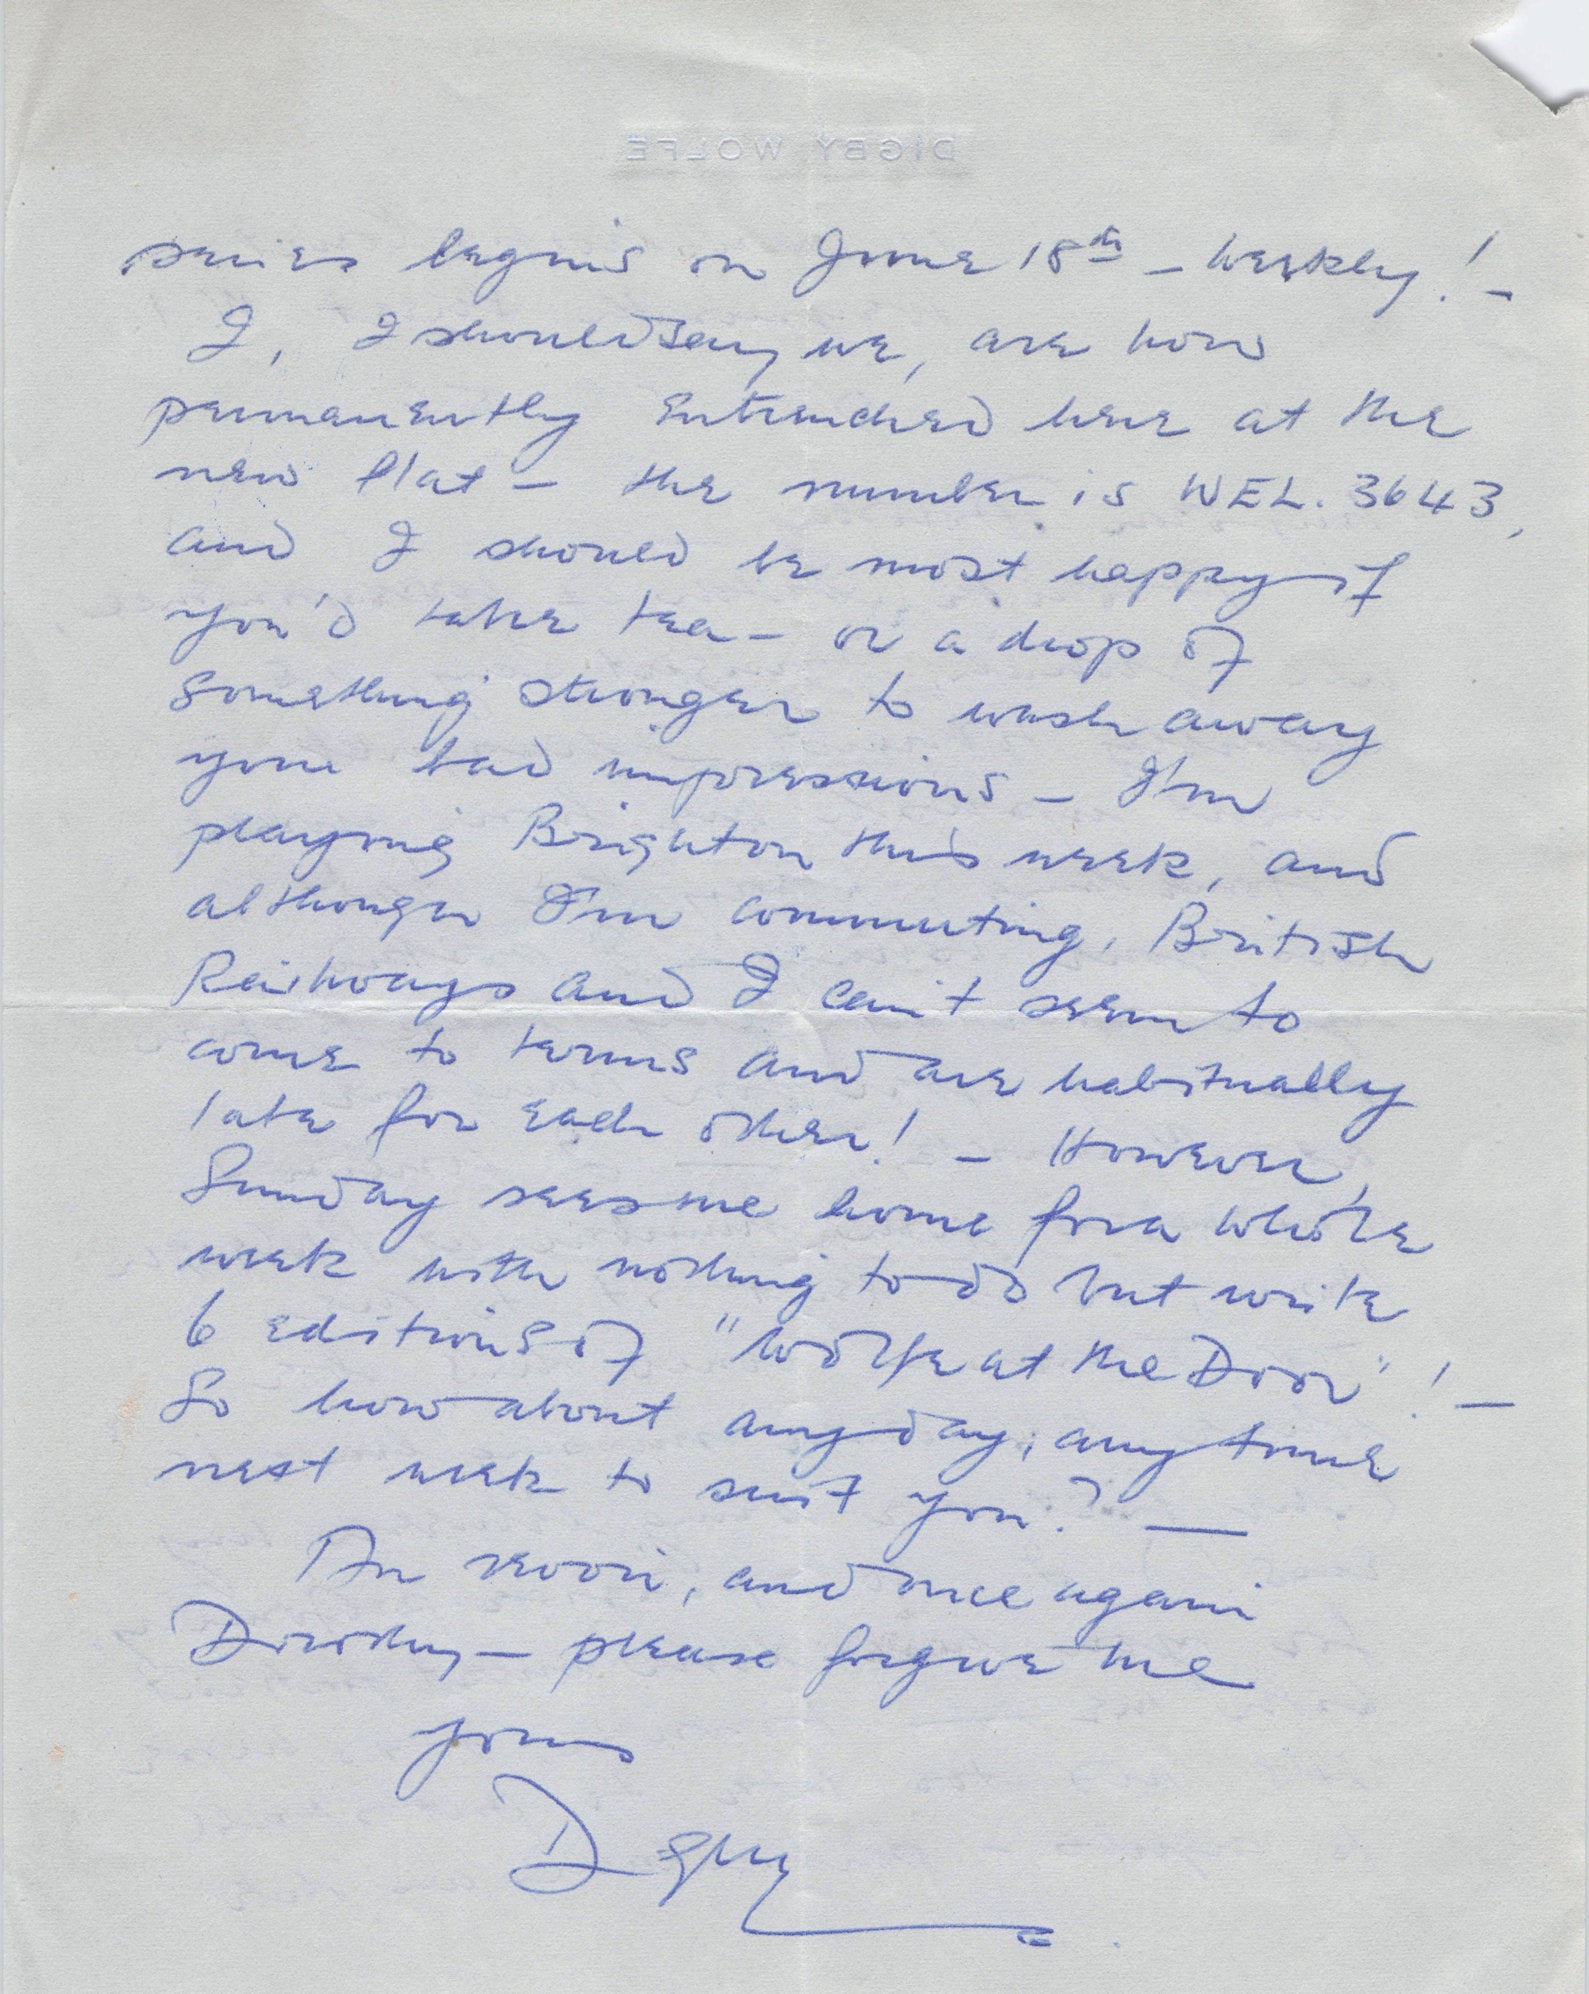 DIGBY WOLFE
series begins on June 18th – weekly! –
I, I should say we, are now
permanently entrenched here at the
new flat – the number is WEL. 3643,
and I should be most happy if
you'd take tea – or a drop of
something stronger to wash away
your bad impressions – I'm
playing Brighton this week, and
although I'm commuting, British
Railways and I can't seem to
come to terms and are habitually
late for each other! – However,
Sunday sees me home for a whole
week with nothing to do but write
6 editions of "Wolfe at the Door"! –
So how about any day, any time
next week to suit you? —
Au revoir, and once again
Dorothy – please forgive me
yours
Digby